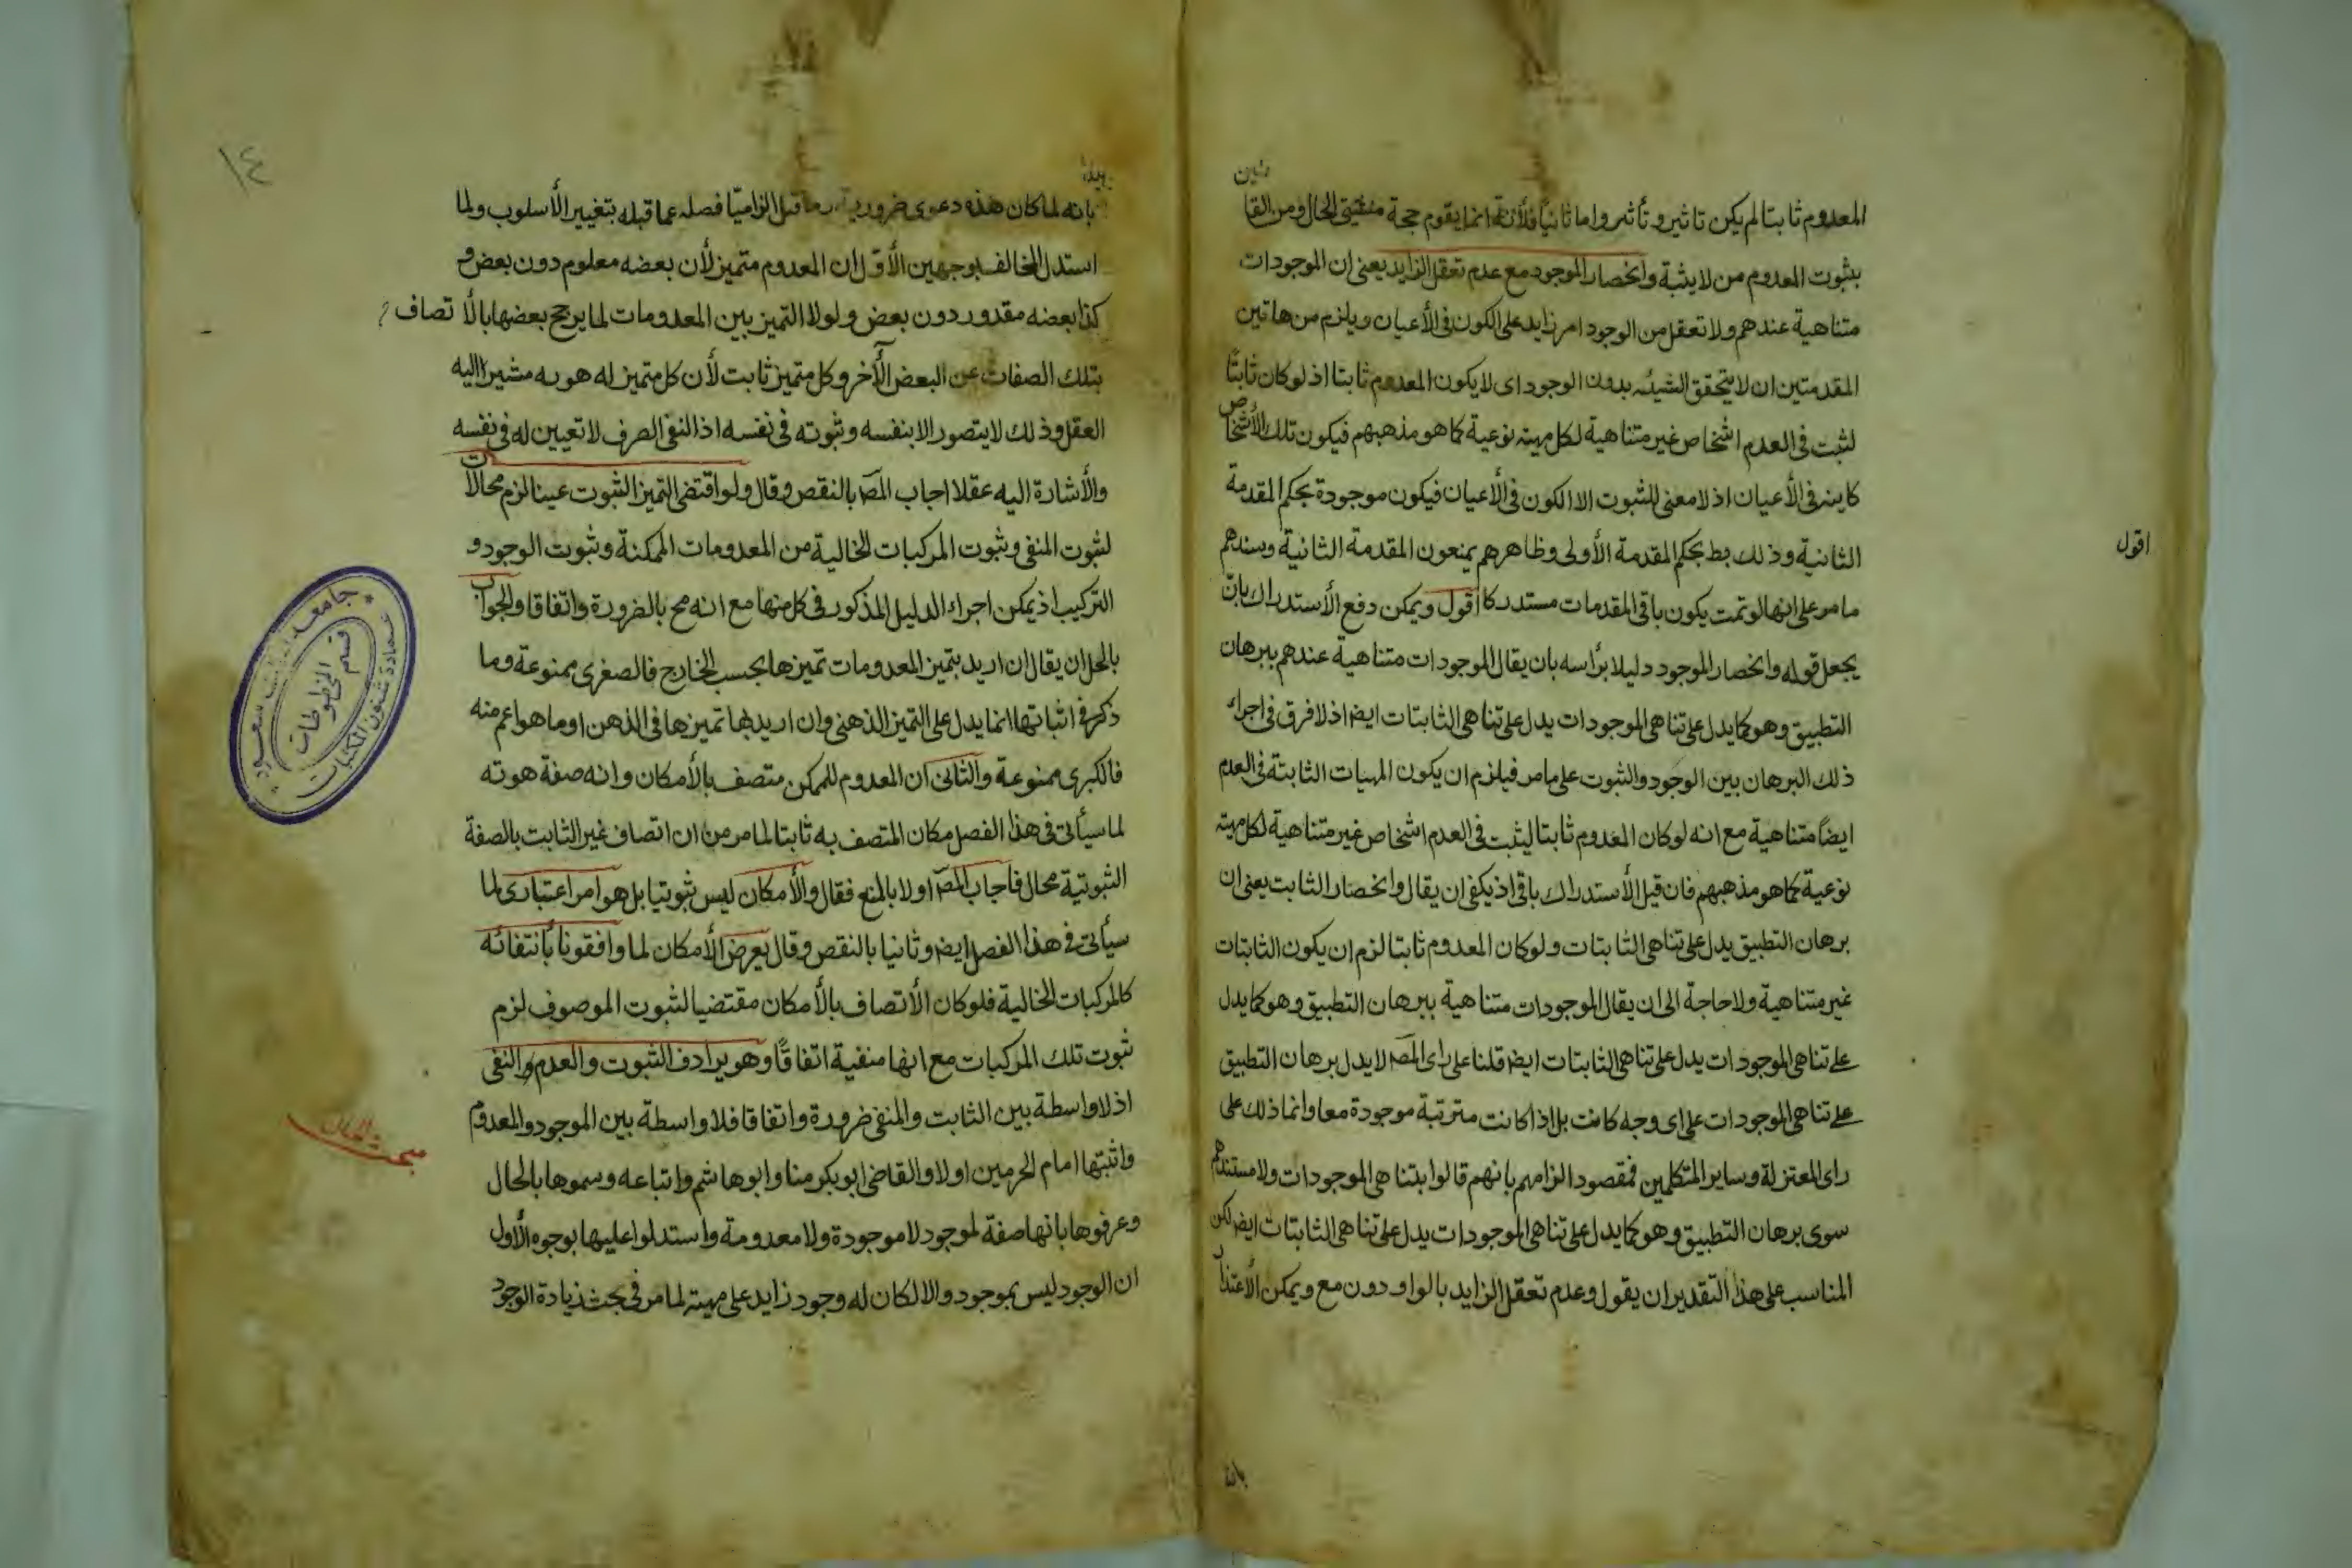 ئلين
المعدوم ثابتا لم يكن تاثير و تأثر واما ثانيا فلأنه انما يقوم حجة مثبتى الحال ومن القا
بثبوت المعدوم من لا يثبته وانحصار الموجود مع عدم تعقل الزايد يعنى ان الموجودات
متناهية عندهم ولا تعقل من الوجود امر زايد على الكون فى الأعيان ويلزم من هاتين
المقدمتين ان لا يتحقق الشيئه بدون الوجود اى لا يكون المعدوم ثابتا اذ لو كان ثابتًا
لثبت فى العدم اشخاص غير متناهية لكل مهيته نوعية كما هو مذهبهم فيكون تلك الأشخاص
كاينه فى الأعيان اذ لا معنى للثبوت الا الكون فى الأعيان فيكون موجودة بحكم المقدمة
الثانية وذلك بط بحكم المقدمة الأولى وظاهرهم يمنعون المقدمة الثانية وسندهم
اقول
ما مر على انها لو تمت يكون باقى المقدمات مستدركا أقول ويمكن دفع الأستدراك بانّ
يجعل قوله وانحصار الموجود دليلا برأسه بان يقال الموجودات متناهية عندهم ببرهان
التطبيق وهو كما يدل على تناهى الموجودات يدل على تناهى الثابتات ايضا اذ لا فرق فى اجراء
ذلك البرهان بين الوجود والثبوت على ما مر فيلزم ان يكون المهيات الثابتة فى العدم
ايضاً متناهية مع انه لو كان المعدوم ثابتا ليثبت فى العدم اشخاص غير متناهية لكل مهيته
نوعية كما هو مذهبهم فان قيل الأستدراك باقى اذ يكفى ان يقال وانحصار الثابت يعنى ان
برهان التطبيق يدل على تناهى الثابتات ولو كان المعدوم ثابتا لزم ان يكون الثابتات
غير متناهية ولا حاجة الى ان يقال الموجودات متناهية ببرهان التطبيق وهو كما يدل
على تناهى الموجودات يدل على تناهى الثابتات ايضا قلنا على راى المصـ لا يدل برهان التطبيق
على تناهى الموجودات على اى وجه كانت بل اذا كانت مترتبة موجودة معا وانما ذلك على
راى المعتزلة وساير المتكلمين فمقصود الزامهم بانهم قالوا بتناهى الموجودات ولا مستندهم
سوى برهان التطبيق وهو كما يدل على تناهى الموجودات يدل على تناهى الثابتات ايضا لكن
المناسب على هذا التقدير ان يقول وعدم تعقل الزايد بالواو دون مع ويمكن الأعتذار
بانه
١٤
بانه لما كان هذه دعوى ضرورية قبل الزاميّا فصله عما قبله بتغيير الأسلوب ولما
استدل المخالف بوجهين الأوّل ان المعدوم متميز لأن بعضه معلوم دون بعض و
كذا بعضه مقدور دون بعض ولولا التميز بين المعدومات لما يرجح بعضها بالأ تصاف
بتلك الصفات عن البعض الأخر وكل متميز ثابت لأن كل متميز له هويه مشيرا اليه
العقل وذلك لا يتصور الا بنفسه وثبوته فى نفسه اذ النفى الصرف لا تعيين له فى نفسه
والأشارة اليه عقلا اجاب المصـ بالنقص وقال ولو اقتضى التميز الثبوت عينا لزم محالات
لثبوت المنفى وثبوت المركبات الخالية من المعدومات الممكنة وثبوت الوجود و
التركيب اذ يمكن اجراء الدليل المذكور فى كل منها مع انه مح بالضرورة واتفاقا والجواب
بالحل ان يقال ان اريد بتميز المعدومات تميزها بحسب الخارج فالصغرى ممنوعة وما
ذكره فى اثباتها انما يدل على التميز الذهنى وان اريد بها تميزها فى الذهن او ما هو اعم منه
فالكبرى ممنوعة والثانى ان المعدوم الممكن متصف بالأمكان وانه صفة هوته
لما سيأتى فى هذا الفصل مكان المتصف به ثابتا لما مر من ان اتصاف غير الثابت بالصفة
الثبوتية محال فاجاب المصـ اولا بالمنع فقال والأمكان ليس ثبوتيا بل هو امر اعتبارى لما
سيأتى فى هذا الفصل ايضا وثانيا بالنقص وقال يعرض الأمكان لما وافقونا بأنتفائه
كالمركبات الخالية فلو كان الأتصاف بالأمكان مقتضيا لثبوت الموصوف لزم
ثبوت تلك المركبات مع انها منفية اتفاقًا وهو يرادف الثبوت والعدم والنفى
اذ لا واسطة بين الثابت والمنفى ضرورة واتفاقا فلا واسطة بين الموجود والمعدوم
مبحث الحال
واثبتها امام الحرمين اولا والقاضى ابو بكر منا وابو هاشم واتباعه وسموها بالحال
وعرفوها بانها صفة لموجود لا موجودة ولا معدومة واستدلوا عليها بوجوه الأول
ان الوجود ليس بموجود والا لكان له وجود زايد على مهيته لما مر فى بحث زيادة الوجود
جامعة الملك سعود
عمادة شئون المكتبات
قسم المخطوطات